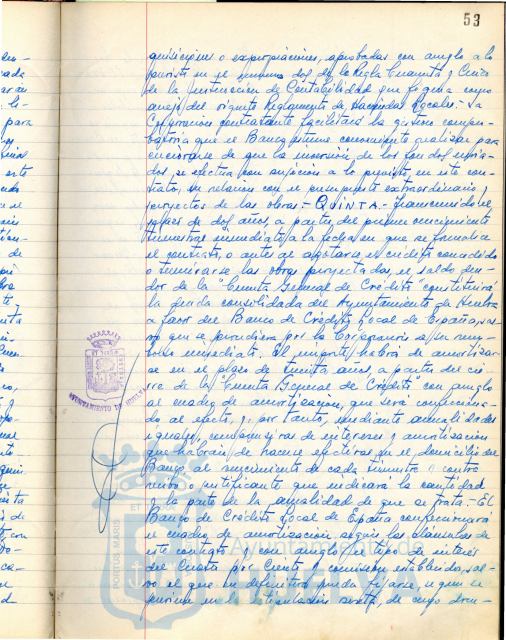 53
quisiciones o expropiaciones, aprobadas con arreglo a lo
previsto en el número dos de la Regla Cuarenta y Cinco
de la Instrucción de Contabilidad que figura como
anejo del vigente Reglamento de Haciendas Locales.- La
Corporación contratante facilitará la gestión comproba-
batoria que el Banco estime conveniente realizar para
cerciorarse de que la inversión de los fondos envia-
dos, se efectúa con sujeción a lo previsto en este con-
trato, en relación con el presupuesto extraordinario y
proyectos de las obras.- QUINTA.- Transcurrido el
plazo de dos años, a partir del primer vencimiento
trimestral inmediato a la fecha en que se formalice
el contrato, o antes al agotarse el crédito concedido
o terminarse las obras proyectadas, el saldo deu-
dor de la "Cuenta General de Crédito" constituirá
la deuda consolidada del Ayuntamiento de Huelva
a favor del Banco de Crédito Local de España, sal-
vo que se procediera por la Corporación a su reem-
bolso inmediato. El importe habrá de amortizar-
se en el plazo de treinta años, a partir del cie-
rre de la "Cuenta General de Crédito" con arreglo
al cuadro de amortización, que será confecciona-
do al efecto, y, por tanto, mediante anualidades
iguales, comprensivas de intereses y amortización
que habrán de hacerse efectivas en el domicilio del
Banco, al vencimiento de cada trimestre y contra
recibo o justificante que indicará la cantidad
a la parte de la anualidad de que se trata.- El
Banco de Crédito Local de España confeccionará
el cuadro de amortización según las cláusulas de
este contrato y con arreglo al tipo de interés
del Cuatro por Ciento y comisión establecidos, sal-
vo el que en definitiva pueda fijarse, según se
previene en la estipulación sexta, de cuyo docu-
AYUNTAMIENTO DE HUELVA
PORTUS MARIS
ET
Ayuntamiento de
HUELVA